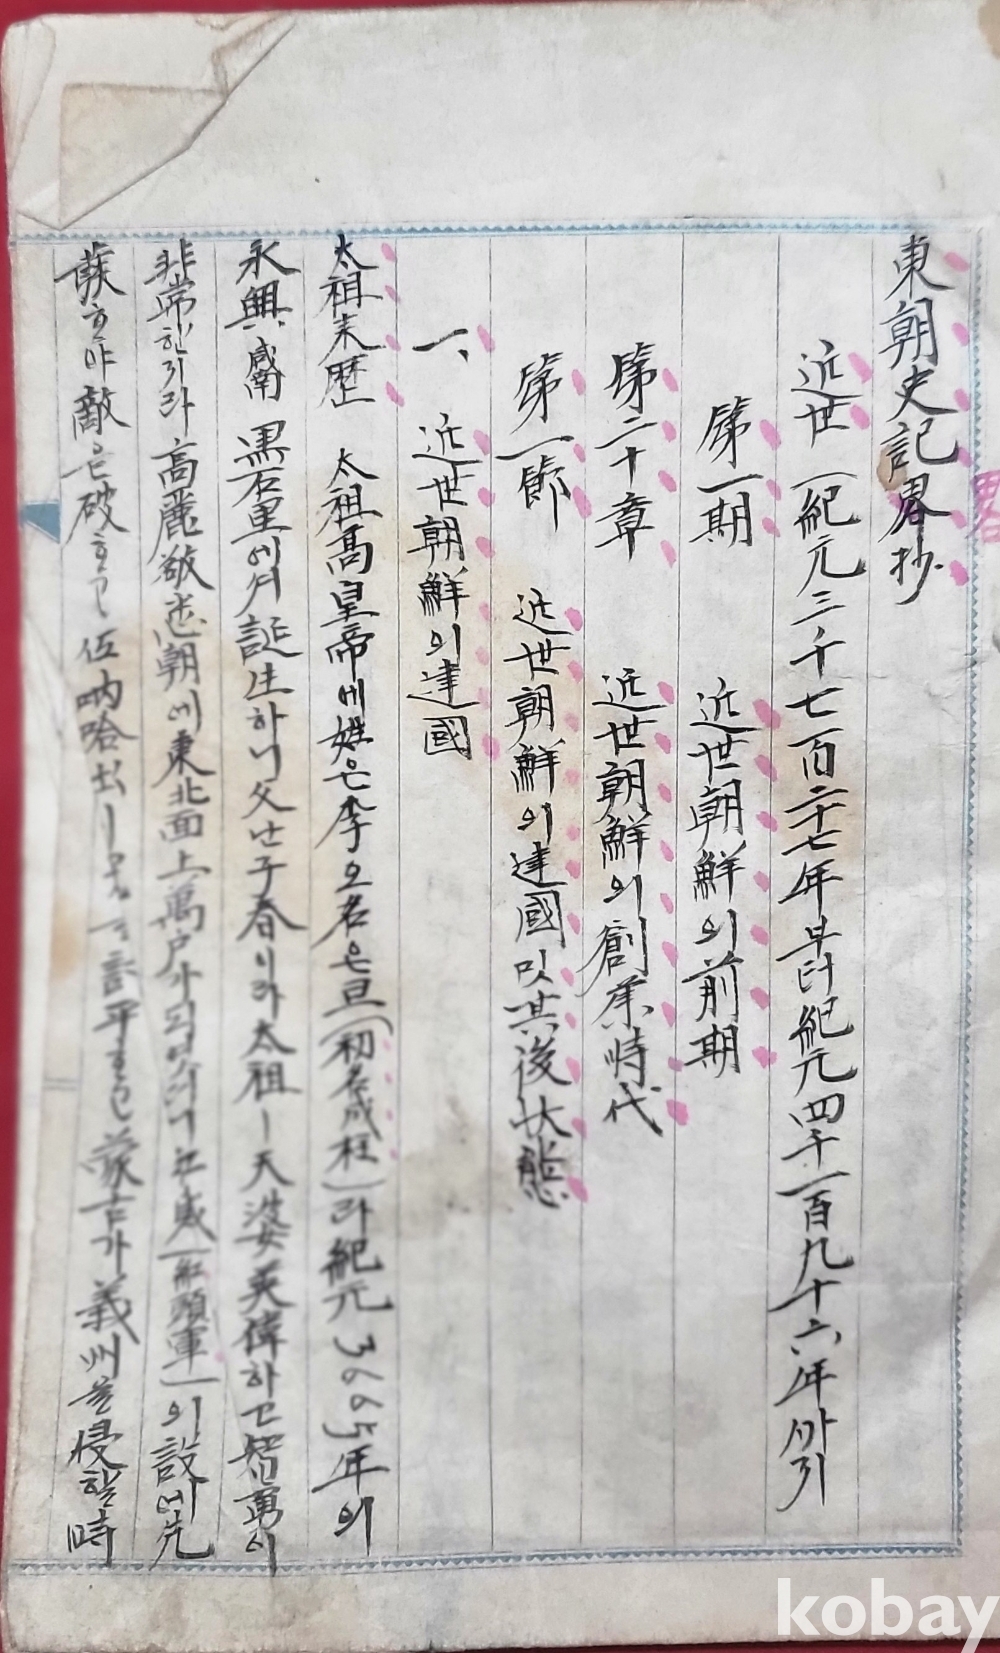 東朝史記畧抄
近世(紀元三千七百二十七年부터紀元四千一百九十六年까지
第一期 近世朝鮮의前期
第二十章 近世朝鮮의創業時代
第一節 近世朝鮮의建國및其後狀態
一、近世朝鮮의建國
太祖来歴 太祖高皇帝에姓은李오名은旦(初名成桂)라紀元3665年의
永興咸南黑石里에셔誕生하니父난子春이라太祖ㅣ天姿英偉하고智勇이
非常한지라高麗敬愍朝에東北面上萬戶가되엿더니(紅頭軍)의設에元
蘇하야敵은破하고 하고蒙古가義州을侵할時
kobay